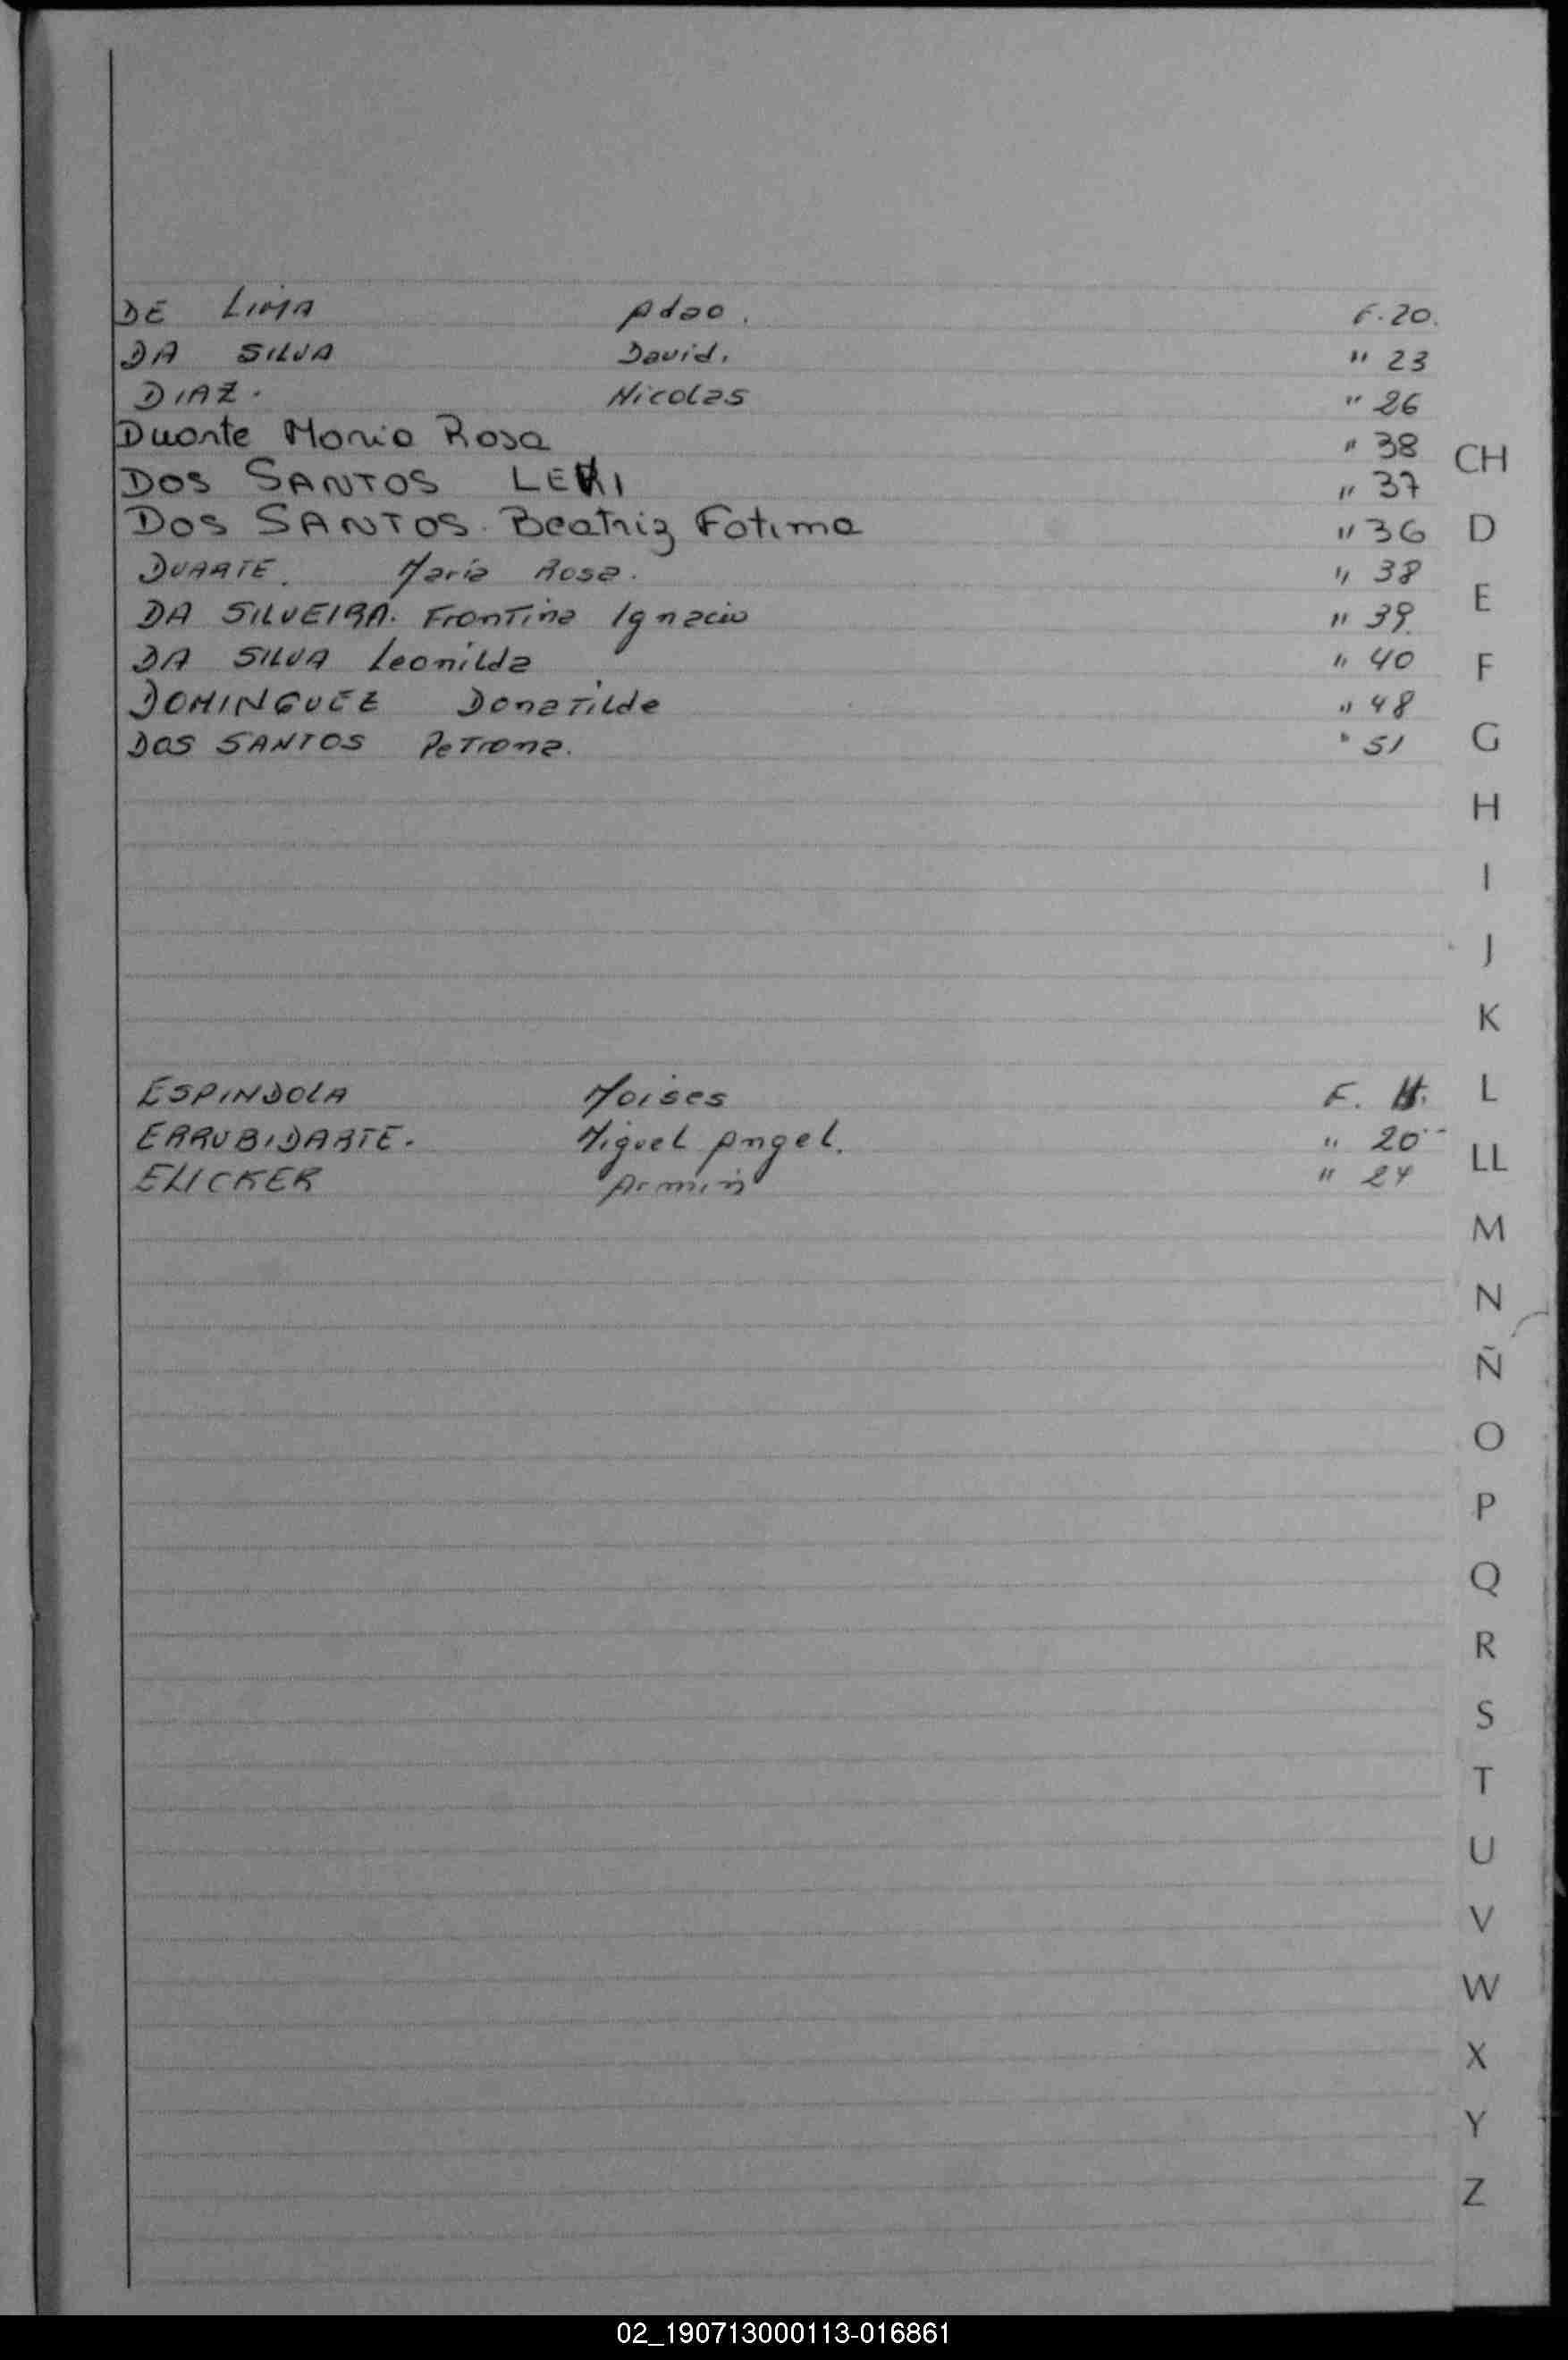 DE LIMA Adao. F. 20.
DA SILVA David. " 23
DIAZ. Nicolas " 26
Duarte Maria Rosa " 38
DOS SANTOS LERI " 37
DOS SANTOS. Beatriz Fatima " 36
DUARTE. Maria Rosa. " 38
DA SILVEIRA. Frontina Ignacio " 39.
DA SILVA Leonilda " 40
DOMINGUEZ Donatilde " 48
DOS SANTOS Petrona. " 51
ESPINDOLA Moises F.
ERRUBIDARTE. Miguel Angel. " 20
ELICKER Armin " 24
CH
D
E
F
G
H
I
J
K
L
LL
M
N
Ñ
O
P
Q
R
S
T
U
V
W
X
Y
Z
02_190713000113-016861